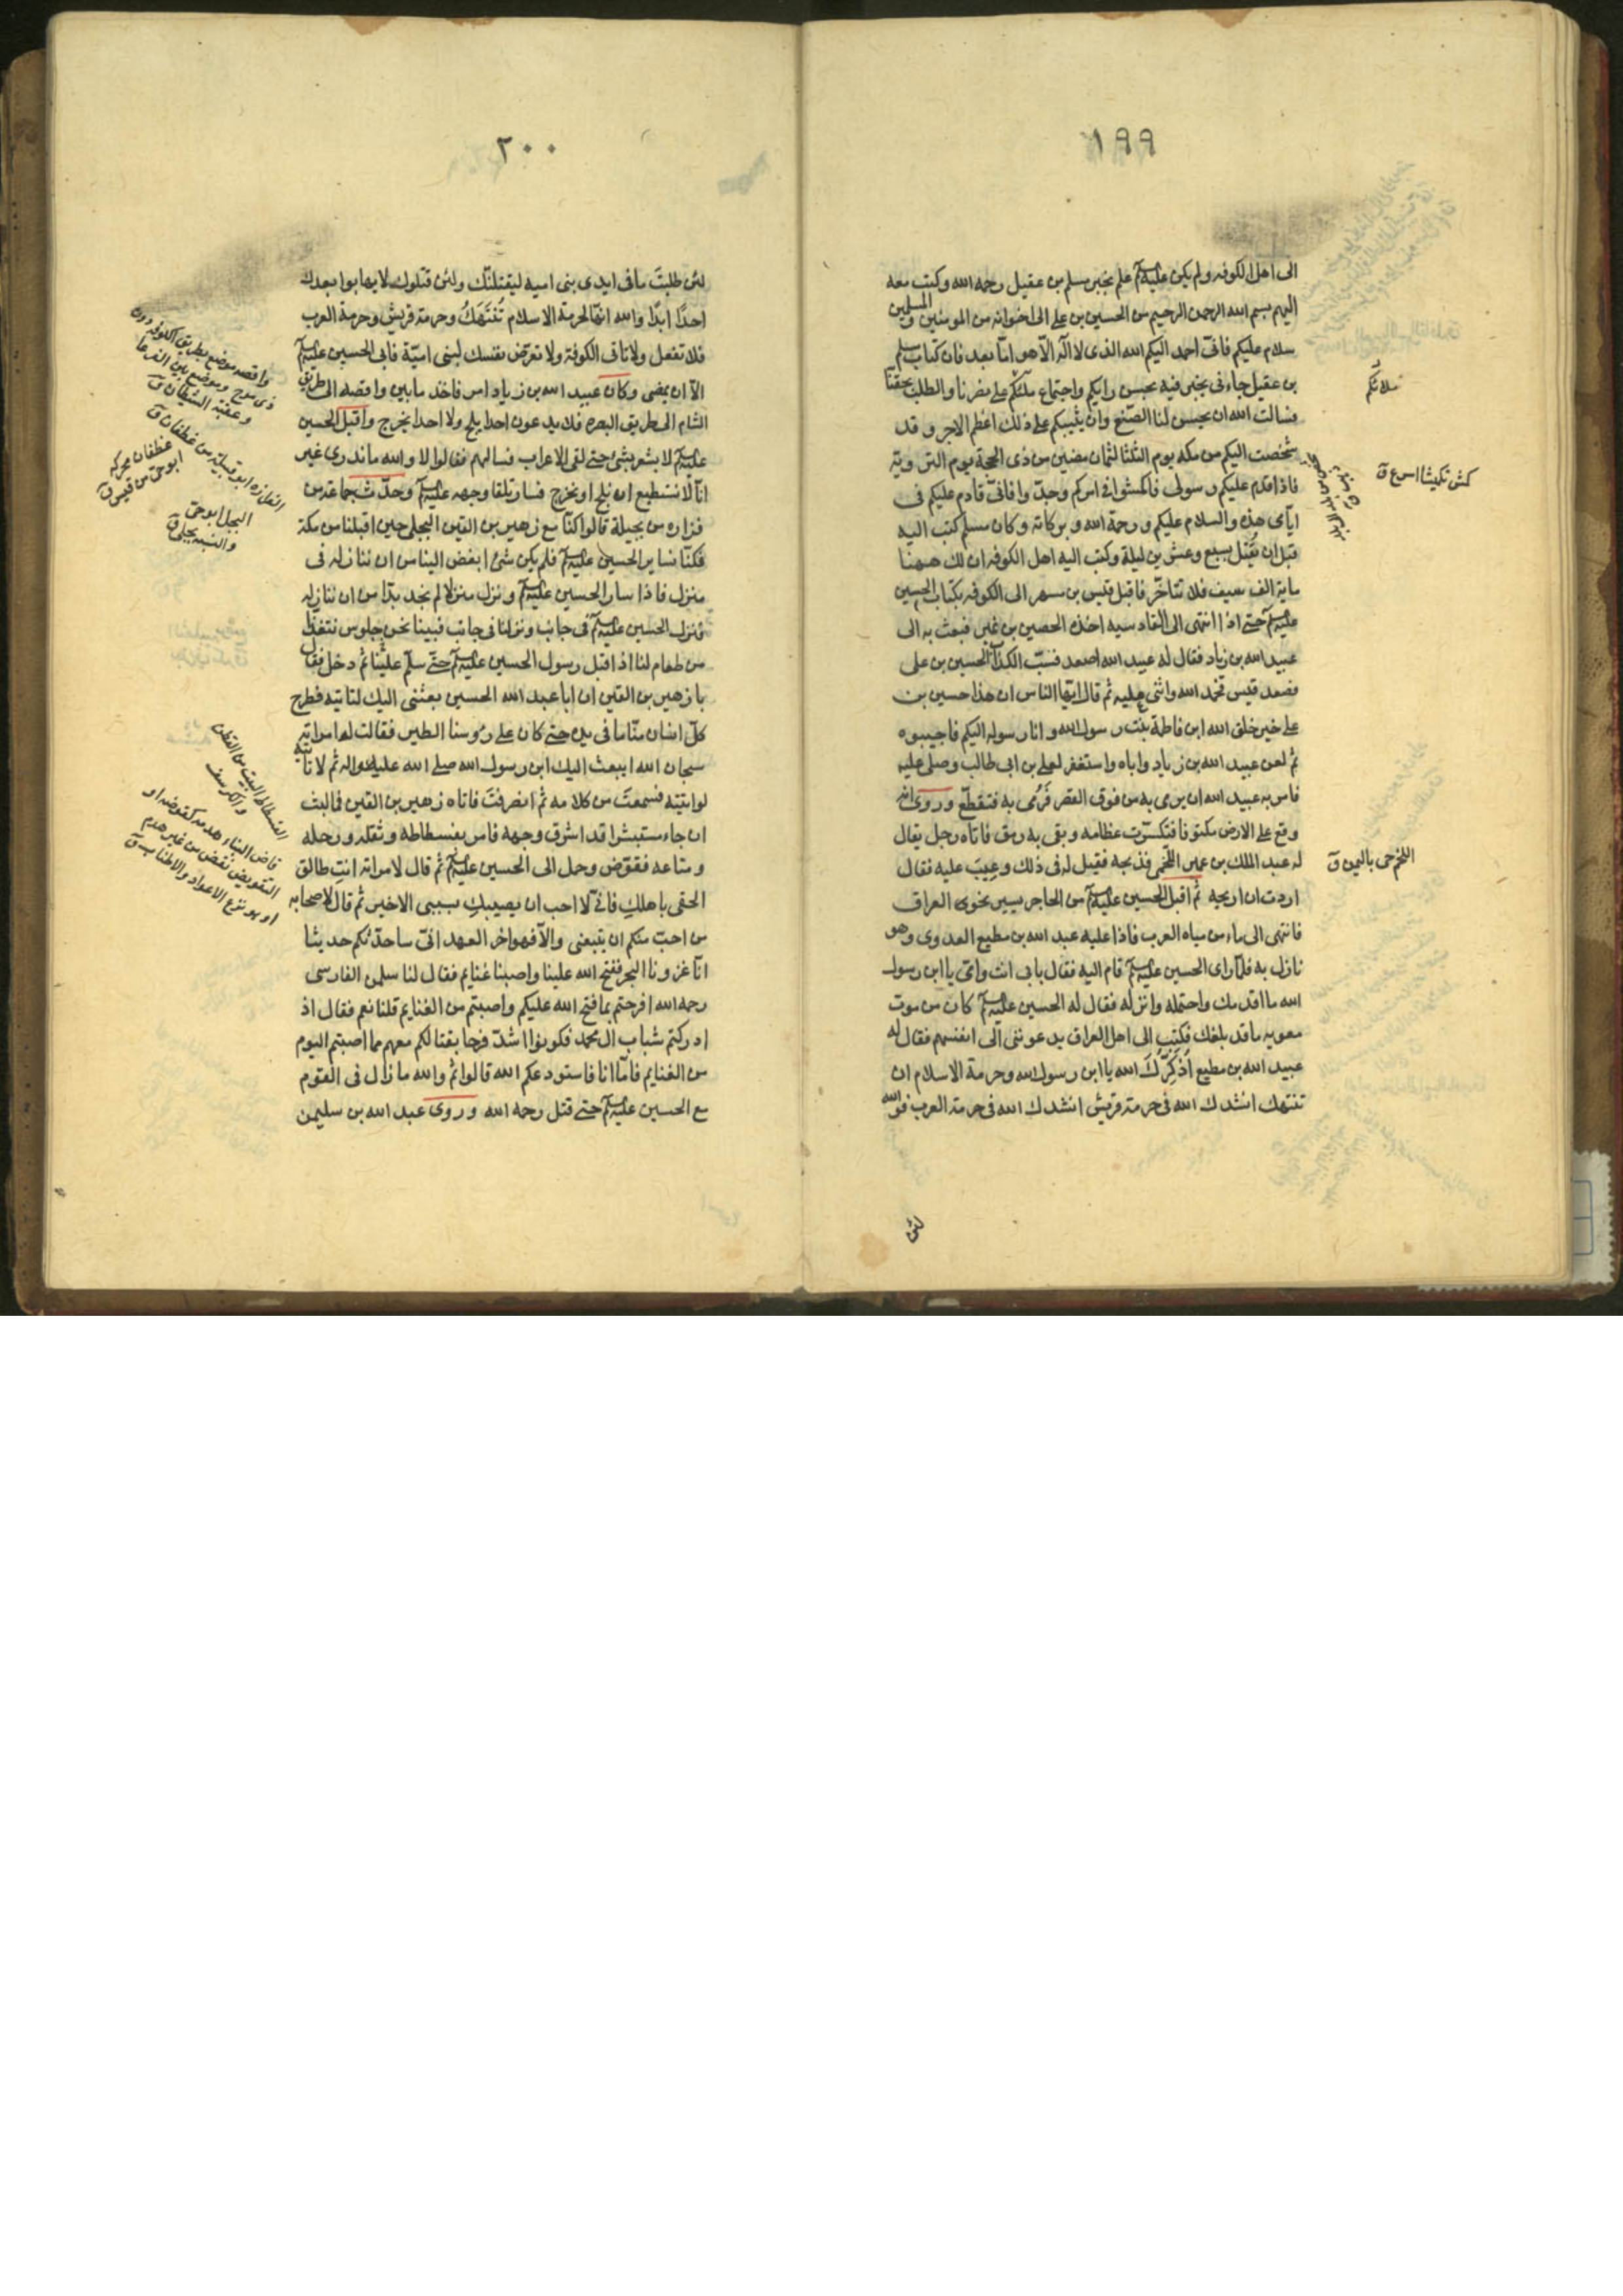 ١٩٩
الى اهل الكوفه ولم يكن عليه السلم علم بخبر مسلم بن عقيل رحمه الله وكتب معه
اليهم بسم الله الرحمن الرحيم من الحسين بن علي الى اخوانه من المومنين والمسلمين
سلام عليكم فانّى احمد اليكم الله الذى لا اله الّا هو امّا بعد فان كتاب مسلم
بن عقيل جاءنى يخبر فيه بحسن رايكم واجتماع ملئكم على نصرنا والطلب بحقنا
فسالت الله ان يحسن لنا الصّنع وان يثيبكم على ذلك اعظم الاجر وقد
شخصت اليكم من مكه يوم الثلثا لثمان مضين من ذى الحجة يوم التروية
فاذا قدم عليكم رسولى فاكمشوا فى امركم وجدّوا فانّى قادم عليكم فى
ايّامى هذه والسلام عليكم ورحمة الله وبركاته وكان مسلم كتب اليه
قبل ان يُقتل بسبع وعشرين ليلة وكتب اليه اهل الكوفه ان لك ههنا
ماية الف سيف فلا تتاخّر فاقبل قيس بن مسهر الى الكوفه بكتاب الحسين
عليه السلم حتى اذا انتهى الى القادسيه اخذه الحصين بن نمير فبعث به الى
عبيد الله بن زياد فقال له عبيد الله اصعد فسبّ الكذّاب الحسين بن على
فصعد قيس فحمد الله واثنى عليه ثم قال ايّها الناس ان هذا حسين بن
على خير خلق الله ابن فاطمة بنت رسول الله وانا رسوله اليكم فاجيبوه
ثم لعن عبيد الله بن زياد واباه واستغفر لعلى بن ابى طالب وصلى عليه
فامر به عبيد الله ان يرمى به من فوق القصر فرُمى به فتقطّع وروى انّه
وقع على الارض مكتوفا فتكسّرت عظامه وبقى به رمق فاتاه رجل يقال
له عبد الملك بن عمير اللّخمى فذبحه فقيل له فى ذلك وعيب عليه فقال
اردت ان اريحه ثم اقبل الحسين عليه السلم من الحاجر يسير نحو العراق
فانتهى الى ماء من مياه العرب فاذا عليه عبد الله بن مطيع العدوى وهو
نازل به فلمّا راى الحسين عليه السلم قام اليه فقال بابى انت وامّى يا ابن رسول
الله ما اقدمك واحتمله وانزله فقال له الحسين عليه السلم كان من موت
معويه ما قد بلغك فكتب الى اهل العراق يدعوننى الى انفسهم فقال له
عبيد الله بن مطيع اُذكّرُكَ الله يا ابن رسول الله وحرمة الاسلام ان
تنتهك انشدك الله فى حرمة قريش انشدك الله فى حرمة العرب فوالله
لئن
ملائكم
كمش تكميشا اسرع ق
اللخم حى باليمن ق
٢٠٠
لئن طلبتَ ما فى ايدى بنى اميه ليقتلنّك ولئن قتلوك لا يهابوا بعدك
احدًا ابدًا والله انّها لحرمة الاسلام تُنتَهَكُ وحرمة قريش وحرمة العرب
فلا تفعل ولا تات الكوفة ولا تعرّض نفسك لبنى اميّة فابى الحسين عليه السلم
الّا ان يمضى وكان عبيد الله بن زياد امر فاخذ ما بين واقصه الى طريق
الشام الى طريق البصره فلا يدعون احدا يلج ولا احدا يخرج واقبل الحسين
عليه السلم لا يشعر بشئ حتى لقى الاعراب فسالهم فقالوا لا والله ما ندرى غير
انّا لا نستطيع ان نلج او نخرج فسار تلقا وجهه عليه السلم وحدّث جماعة من
فزاره من بجيلة قالوا كنّا مع زهير بن القين البجلى حين اقبلنا من مكة
فكنّا نساير الحسين عليه السلم فلم يكن شئ ابغض الينا من ان ننازله فى
منزل فاذا سار الحسين عليه السلم ونزل منزلا لم نجد بدّا من ان ننازله
فنزل الحسين عليه السلم فى جانب ونزلنا فى جانب فبينا نحن جلوس نتغذّا
من طعام لنا اذ اقبل رسول الحسين عليه السلم حتّى سلّم علينا ثم دخل فقال
يا زهير بن القين ان ابا عبد الله الحسين بعثنى اليك لتاتيه فطرح
كلّ انسان منّا ما فى يده حتى كان على رؤسنا الطير فقالت له امراته
سبحان الله ايبعث اليك ابن رسول الله صلى الله عليه واله ثم لا تاتيه
لو اتيته فسمعتَ من كلامه ثم انصرفتَ فاتاه زهير بن القين فما لبث
ان جاء مستبشرا قد اشرق وجهه فامر بفسطاطه وثقله ورحله
ومتاعه فقوّض وحمل الى الحسين عليه السلم ثم قال لامراته انتِ طالق
الحقى باهلكِ فانّى لا احب ان يصيبكِ بسببى الا خير ثم قال لاصحابه
من احبّ منكم ان يتبعنى والّا فهو اخر العهد انّى ساحدّثكم حديثا
انّا غزونا البحر ففتح الله علينا واصبنا غنايم فقال لنا سلمن الفارسى
رحمه الله افرحتم بما فتح الله عليكم واصبتم من الغنايم قلنا نعم فقال اذ
ادركتم شباب ال محمد فكونوا اشدّ فرحا بقتالكم معهم مما اصبتم اليوم
من الغنايم فامّا انا فاستودعكم الله قالوا ثم والله ما زال فى القوم
مع الحسين عليه السلم حتى قتل رحمه الله وروى عبد الله بن سليمن
واقصه موضع بطريق الكوفه دون
ذى مرخ وموضع بين الفرعا
وعقبة الشيطان ق
الفزاره ابو قبيلة من غطفان ق
غطفان محركه
ابو حى من قيس ق
البجل ابو حى
والنسبه بجلى ق
الفسطاط البيت من القطن
والكرسف
قاض البناء هدمه كقوضه او
التقويض نقض من غير هدم
او هو نزع الاعواد والاطناب ق